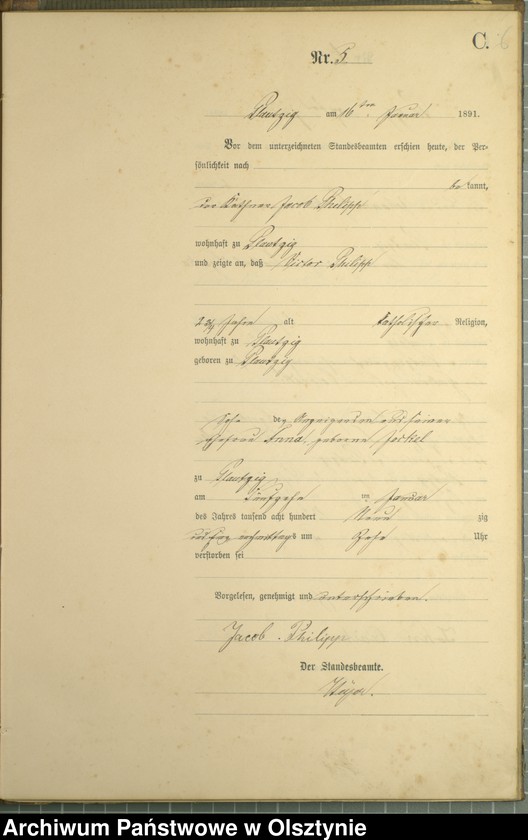 C. 6
Nr. 5
Plautzig am 16ten Januar 1891.
Vor dem unterzeichneten Standesbeamten erschien heute, der Per-
sönlichkeit nach
be kannt,
der Käthner Jacob Philipp
wohnhaft zu Plautzig
und zeigte an, daß Victor Philipp
2 3/4 Jahre alt katholischer Religion,
wohnhaft zu Plautzig
geboren zu Plautzig
Sohn des Anzeigenden und seiner
Ehefrau Anna, geborene Jackel
zu Plautzig
am fünfzehn ten Januar
des Jahres tausend acht hundert Neun zig
und Ein mittags um Zehn Uhr
verstorben sei
Vorgelesen, genehmigt und unterschrieben.
Jacob Philipp
Der Standesbeamte.
Archiwum Państwowe w Olsztynie